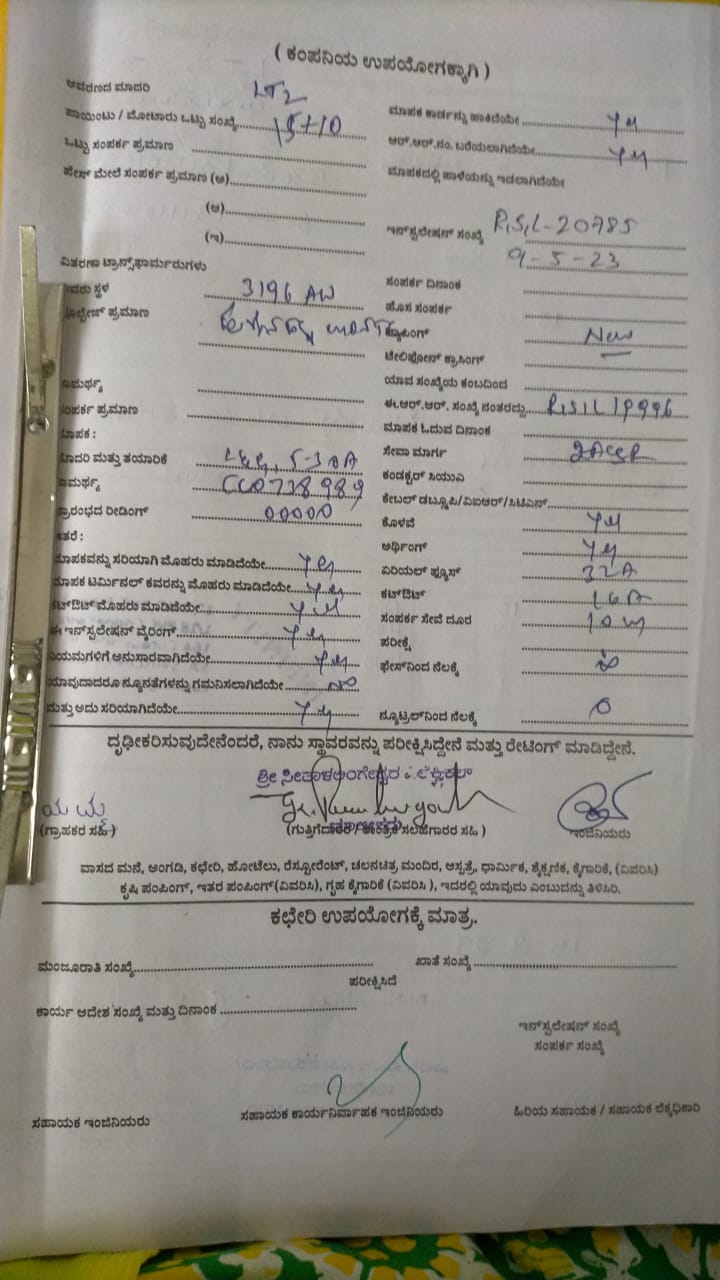 ( ಕಂಪನಿಯ ಉಪಯೋಗಕ್ಕಾಗಿ )
ಆವರಣದ ಮಾದರಿ LT2
ಪಾಯಿಂಟು / ಮೋಟಾರು ಒಟ್ಟು ಸಂಖ್ಯೆ 15+10
ಒಟ್ಟು ಸಂಪರ್ಕ ಪ್ರಮಾಣ
ಫೇಸ್ ಮೇಲೆ ಸಂಪರ್ಕ ಪ್ರಮಾಣ (ಅ)
(ಆ)
(ಇ)
ವಿತರಣಾ ಟ್ರಾನ್ಸ್‌ಫಾರ್ಮರುಗಳು
ಸ್ಥಳ 3196 AW
ಪ್ರಮಾಣ
ಸಂಪರ್ಕ ಪ್ರಮಾಣ
ಮಾಪಕ :
ಮಾದರಿ ಮತ್ತು ತಯಾರಿಕೆ L&G, 5-30A
ಸಾಮರ್ಥ್ಯ
ಪ್ರಾರಂಭದ ರೀಡಿಂಗ್ 00000
ಇತರೆ :
ಮಾಪಕವನ್ನು ಸರಿಯಾಗಿ ಮೊಹರು ಮಾಡಿದೆಯೇ Yes
ಮಾಪಕ ಟರ್ಮಿನಲ್ ಕವರನ್ನು ಮೊಹರು ಮಾಡಿದೆಯೇ Yes
ಕಟ್‌ಔಟ್ ಮೊಹರು ಮಾಡಿದೆಯೇ Yes
ಈ ಇನ್‌ಸ್ಟಲೇಷನ್ ವೈರಿಂಗ್ Yes
ನಿಯಮಗಳಿಗೆ ಅನುಸಾರವಾಗಿದೆಯೇ Yes
ಯಾವುದಾದರೂ ನ್ಯೂನತೆಗಳನ್ನು ಗಮನಿಸಲಾಗಿದೆಯೇ No
ಮತ್ತು ಅದು ಸರಿಯಾಗಿದೆಯೇ Yes
ಮಾಪಕ ಕಾರ್ಡನ್ನು ಹಾಕಿದೆಯೇ Yes
ಆರ್.ಆರ್.ನಂ. ಬರೆಯಲಾಗಿದೆಯೇ Yes
ಮಾಪಕದಲ್ಲಿ ಹಾಳೆಯನ್ನು ಇಡಲಾಗಿದೆಯೇ
ಇನ್‌ಸ್ಟಲೇಷನ್ ಸಂಖ್ಯೆ RSIL-20785
9-5-23
ಸಂಪರ್ಕ ದಿನಾಂಕ
ಹೊಸ ಸಂಪರ್ಕ
New
ಟೇಲಿಫೋನ್ ಕ್ರಾಸಿಂಗ್
ಯಾವ ಸಂಖ್ಯೆಯ ಕಂಬದಿಂದ
ಈ.ಆರ್.ಆರ್. ಸಂಖ್ಯೆ ನಂತರದ್ದು RSIL19996
ಮಾಪಕ ಓದುವ ದಿನಾಂಕ
ಸೇವಾ ಮಾರ್ಗ
ಕಂಡಕ್ಟರ್ ಸಿಯುವಿ
ಕೇಬಲ್ ಡಬ್ಲೂಪಿ/ವಿಐಆರ್/ಸಿಟಿಎಸ್
ಕೊಳವೆ Yes
ಅರ್ಥಿಂಗ್ Yes
ಏರಿಯಲ್ ಫ್ಯೂಸ್ 32A
ಕಟ್‌ಔಟ್ 16A
ಸಂಪರ್ಕ ಸೇವೆ ದೂರ 10 M
ಪರೀಕ್ಷೆ
ಫೇಸ್‌ನಿಂದ ನೆಲಕ್ಕೆ
ನ್ಯೂಟ್ರಲ್‌ನಿಂದ ನೆಲಕ್ಕೆ 0
ದೃಢೀಕರಿಸುವುದೇನೆಂದರೆ, ನಾನು ಸ್ಥಾವರವನ್ನು ಪರೀಕ್ಷಿಸಿದ್ದೇನೆ ಮತ್ತು ರೇಟಿಂಗ್ ಮಾಡಿದ್ದೇನೆ.
ಶ್ರೀ
(ಗ್ರಾಹಕರ ಸಹಿ) (ಗುತ್ತಿಗೆದಾರರ / ತಾಂತ್ರಿಕ ಸಲಹೆಗಾರರ ಸಹಿ ) ಇಂಜಿನಿಯರು
ವಾಸದ ಮನೆ, ಅಂಗಡಿ, ಕಛೇರಿ, ಹೋಟೆಲು, ರೆಸ್ಟೋರೆಂಟ್, ಚಲನಚಿತ್ರ ಮಂದಿರ, ಆಸ್ಪತ್ರೆ, ಧಾರ್ಮಿಕ, ಶೈಕ್ಷಣಿಕ, ಕೈಗಾರಿಕೆ, (ವಿವರಿಸಿ)
ಕೃಷಿ ಪಂಪಿಂಗ್, ಇತರ ಪಂಪಿಂಗ್(ವಿವರಿಸಿ), ಗೃಹ ಕೈಗಾರಿಕೆ (ವಿವರಿಸಿ ), ಇದರಲ್ಲಿ ಯಾವುದು ಎಂಬುದನ್ನು ತಿಳಿಸಿರಿ.
ಕಛೇರಿ ಉಪಯೋಗಕ್ಕೆ ಮಾತ್ರ.
ಮಂಜೂರಾತಿ ಸಂಖ್ಯೆ ಖಾತೆ ಸಂಖ್ಯೆ
ಪರೀಕ್ಷಿಸಿದೆ
ಕಾರ್ಯ ಆದೇಶ ಸಂಖ್ಯೆ ಮತ್ತು ದಿನಾಂಕ
ಇನ್‌ಸ್ಟಲೇಷನ್ ಸಂಖ್ಯೆ
ಸಂಪರ್ಕ ಸಂಖ್ಯೆ
ಸಹಾಯಕ ಇಂಜಿನಿಯರು ಸಹಾಯಕ ಕಾರ್ಯನಿರ್ವಾಹಕ ಇಂಜಿನಿಯರು ಹಿರಿಯ ಸಹಾಯಕ / ಸಹಾಯಕ ಲೆಕ್ಕಧಿಕಾರಿ